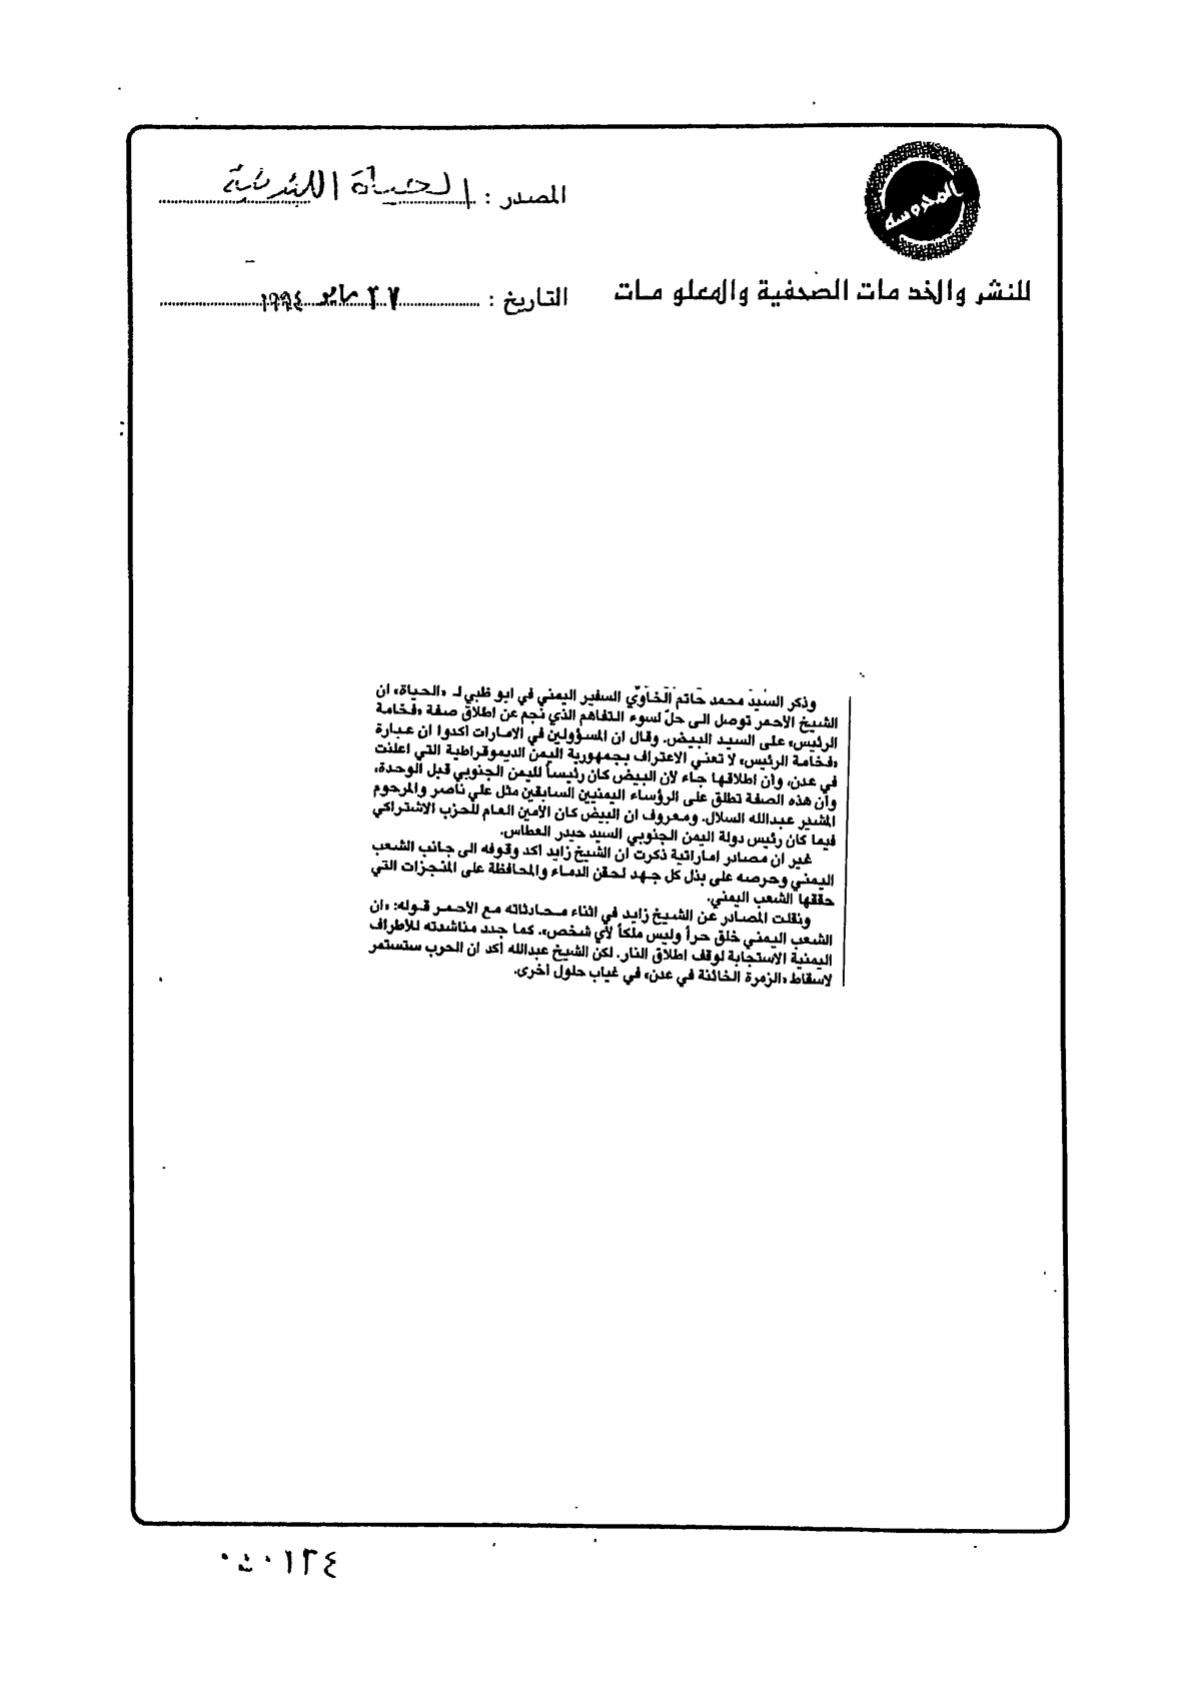 المحروسة
المصدر : الحياة اللندنية
للنشر والخدمات الصحفية والمعلومات
التاريخ : ٢٧ مايو ١٩٩٤
وذكر السيد محمد حاتم الخاوي السفير اليمني في ابو ظبي لـ «الحياة» ان
الشيخ الأحمر توصل الى حلّ لسوء التفاهم الذي نجم عن اطلاق صفة «فخامة
الرئيس» على السيد البيض. وقال ان المسؤولين في الامارات أكدوا ان عبارة
«فخامة الرئيس» لا تعني الاعتراف بجمهورية اليمن الديموقراطية التي اعلنت
في عدن، وأن اطلاقها جاء لأن البيض كان رئيساً لليمن الجنوبي قبل الوحدة،
وأن هذه الصفة تطلق على الرؤساء اليمنيين السابقين مثل علي ناصر والمرحوم
المشير عبدالله السلال. ومعروف ان البيض كان الأمين العام للحزب الاشتراكي
فيما كان رئيس دولة اليمن الجنوبي السيد حيدر العطاس.
غير ان مصادر اماراتية ذكرت ان الشيخ زايد أكد وقوفه الى جانب الشعب
اليمني وحرصه على بذل كل جهد لحقن الدماء والمحافظة على المنجزات التي
حققها الشعب اليمني.
ونقلت المصادر عن الشيخ زايد في اثناء محادثاته مع الأحمر قوله: «ان
الشعب اليمني خلق حراً وليس ملكاً لأي شخص». كما جدد مناشدته للأطراف
اليمنية الاستجابة لوقف اطلاق النار. لكن الشيخ عبدالله أكد ان الحرب ستستمر
لاسقاط «الزمرة الخائنة في عدن» في غياب حلول أخرى.